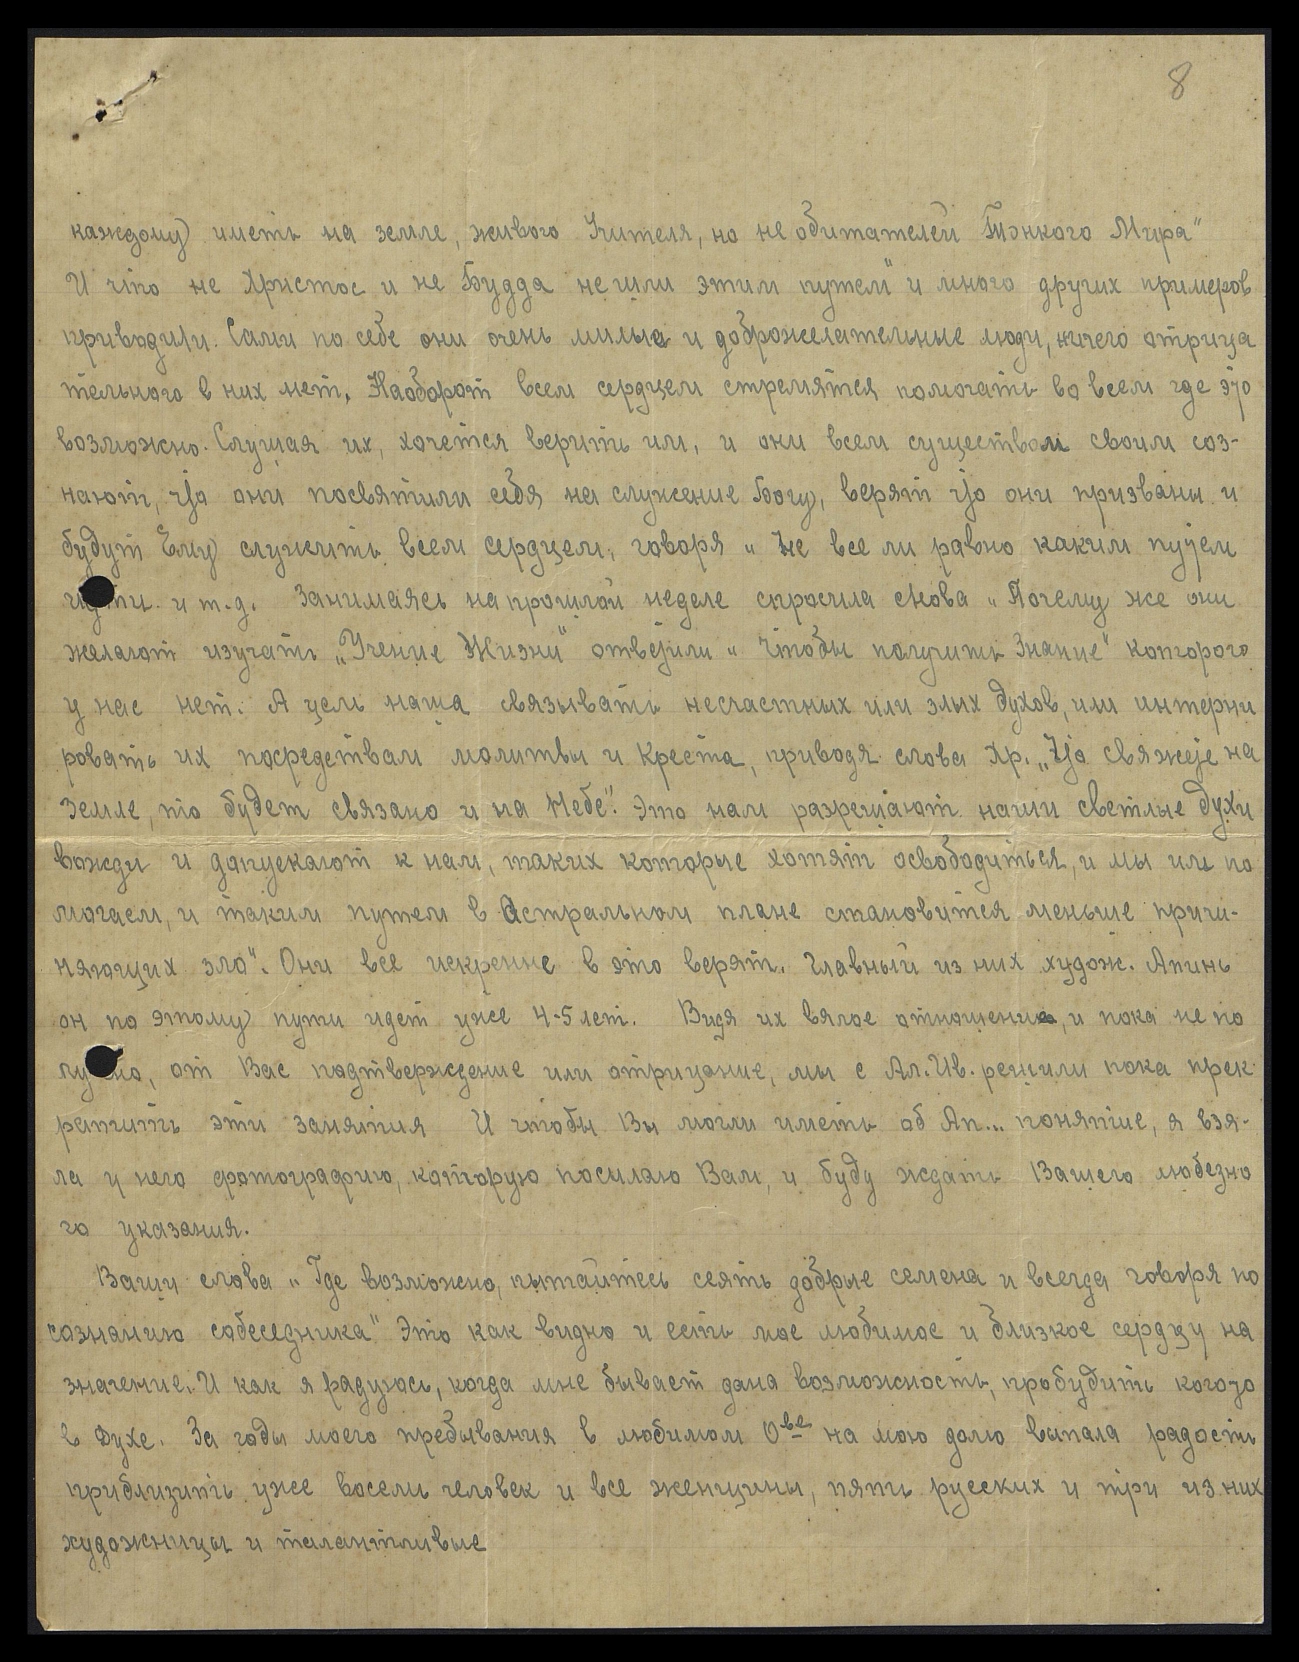 8
каждому иметь на земле, живого Учителя, но не обитателей Тонкого Мира"
И что не Христос и не Будда не шли этим путем" и много других примеров
приводили. Сами по себе они очень милые и доброжелательные люди, ничего отрица
тельного в них нет, Наоборот всем сердцем стремятся помогать во всем где это
возможно. Слушая их, хочется верить им, и они всем существом своим соз-
нают, что они посвятили себя на служение Богу, верят что они призваны и
будут Ему служить всем сердцем, говоря „ Не все ли равно каким путем
и т.д. Занимаясь на прошлой неделе спросила снова „ Почему же они
желают изучать „Учение Жизни" ответили „ Чтобы получить Знание" которого
у нас нет. А цель наша связывать несчастных или злых духов, или интерни
ровать их посредствам молитвы и Креста, приводя слова Хр. „Что свяжете на
Земле, то будет связано и на Небе". Это нам разрещают наши светлые духи
вожди и допускают к нам, таких которые хотят освободиться, и мы им по
могаем, и таким путем в Астральном плане становится меньше причи-
няющих зло". Они все искренне в это верят. Главный из них худож. Апинь
он по этому пути идет уже 4-5 лет. Видя их вялое отношение, и пока не по
лучено, от Вас подтверждение или отрицание, мы с Ал.Ив. решили пока прек
ратить эти занятия И чтобы Вы могли иметь об Ап... понятие, я взя-
ла у него фотографию, которую посылаю Вам, и буду ждать Вашего любезно
го указания.
Ваши слова „ Где возможно, пытайтесь сеять добрые семена и всегда говоря по
сознанию собеседника" Это как видно и есть мое любимое и близкое сердцу на
значение. И как я радуюсь, когда мне бывает дана возможность, пробудить когото
в духе. За годы моего пребывания в любимом О-ве на мою долю выпала радость
приблизить уже восемь человек и все женщины, пять русских и три из них
художницы и талантливые